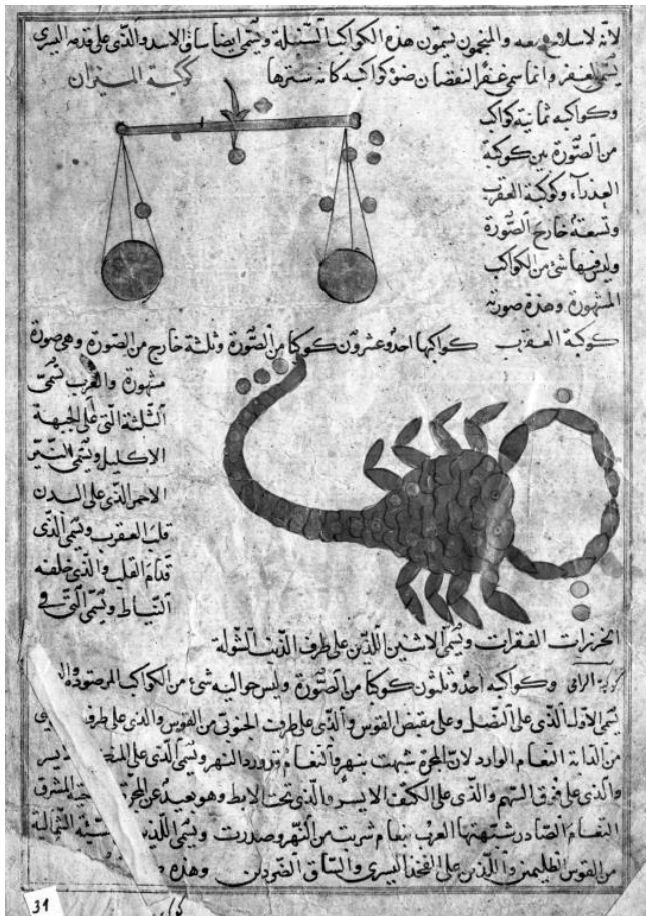 لانه لا سلاح معه والمنجمون يسمون هذه الكواكب السنبلة ويسمى ايضا ساق الاسد والذى على قدمه اليسرى
يسمى الغفر وانما سمى غفرا لنقصان ضوء كواكبه كانه سترها كوكبة الميزان
وكواكبه ثمانية كواكب
من الصورة بين كوكبة
العذراء وكوكبة العقرب
وتسعة خارج الصورة
وليس فيها شئ من الكواكب
المشهورة وهذه صورته
كوكبة العقرب كواكبها احد وعشرون كوكبا من الصورة وثلثة خارج من الصورة وهى صورة
مشهورة والعرب تسمى
الثلثة التى على الجبهة
الاكليل ويسمى النير
الاحمر الذى على البدن
قلب العقرب ويسمى الذى
قدام القلب والذى خلفه
النياط ويسمى التى فى
الخرزات الفقرات ويسمى الاثنين اللذين على طرف الذنب الشولة
كوكبة الرامى وكواكبه احد وثلثون كوكبا من الصورة وليس حواليه شئ من الكواكب المرصودة
يسمى الاول الذى على النصل وعلى مقبض القوس والذى على طرف الجنوبى من القوس والذى على طرف
من الدابة النعام الوارد لان المجرة شبهت بنهر والنعام قد ورد النهر ويسمى الذى على
والذى على فوق السهم والذى على الكتف الايسر والذى تحت الابط وهو بعيد عن المجرة المشرق
النعام الصادر شبهتها العرب بنعام شربت من النهر وصدرت ويسمى الشمالية
من القوس الظليمين واللذين على الفخذ اليسرى والساق الصردين وهذه
31